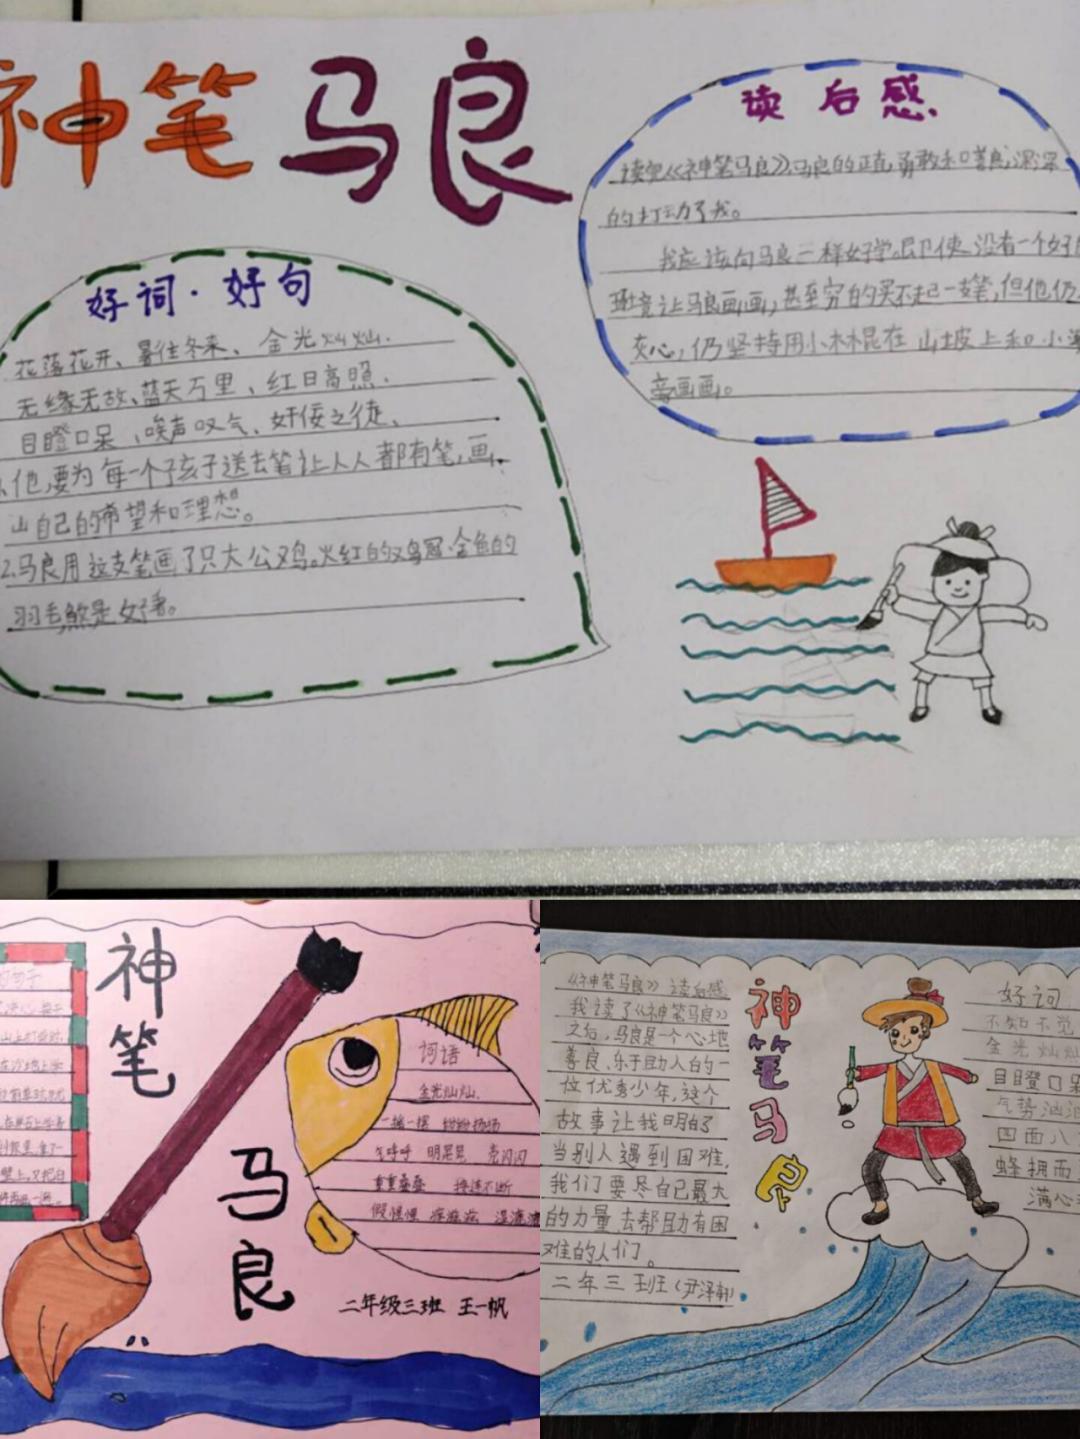 神笔马良
好词·好句
花落花开、暑往冬来、金光灿灿.
无缘无故、蓝天万里、红日高照.
目瞪口呆、唉声叹气、奸佞之徒、
1.他,要为每一个孩子送去笔让人人都有笔,画
山自己的希望和理想。
2.马良用这支笔画了只大公鸡。火红的鸡冠.金色的
羽毛煞是好看。
读后感
读完《神笔马良》,马良的正直勇敢和善良,深深
的打动了我。
我应该向马良一样好学。即使没有一个好的
环境让马良画画,甚至穷的买不起一支笔,但他仍
灰心,仍坚持用小木棍在山坡上和小溪
旁画画。
神笔
马良
词语
金光灿灿.
一摇一摆
气呼呼 明晃晃 亮闪闪
重重叠叠 接连不断
二年级三班 王一帆
《神笔马良》读后感
我读了《神笔马良》
之后,马良是一个心地
善良、乐于助人的一
位优秀少年,这个
故事让我明白了
当别人遇到困难,
我们要尽自己最大
的力量,去帮助有困
难的人们。
二年三班(尹泽翰)
神笔马良
好词
不知不觉
金光灿灿
目瞪口呆
气势汹汹
四面八
蜂拥而
满心